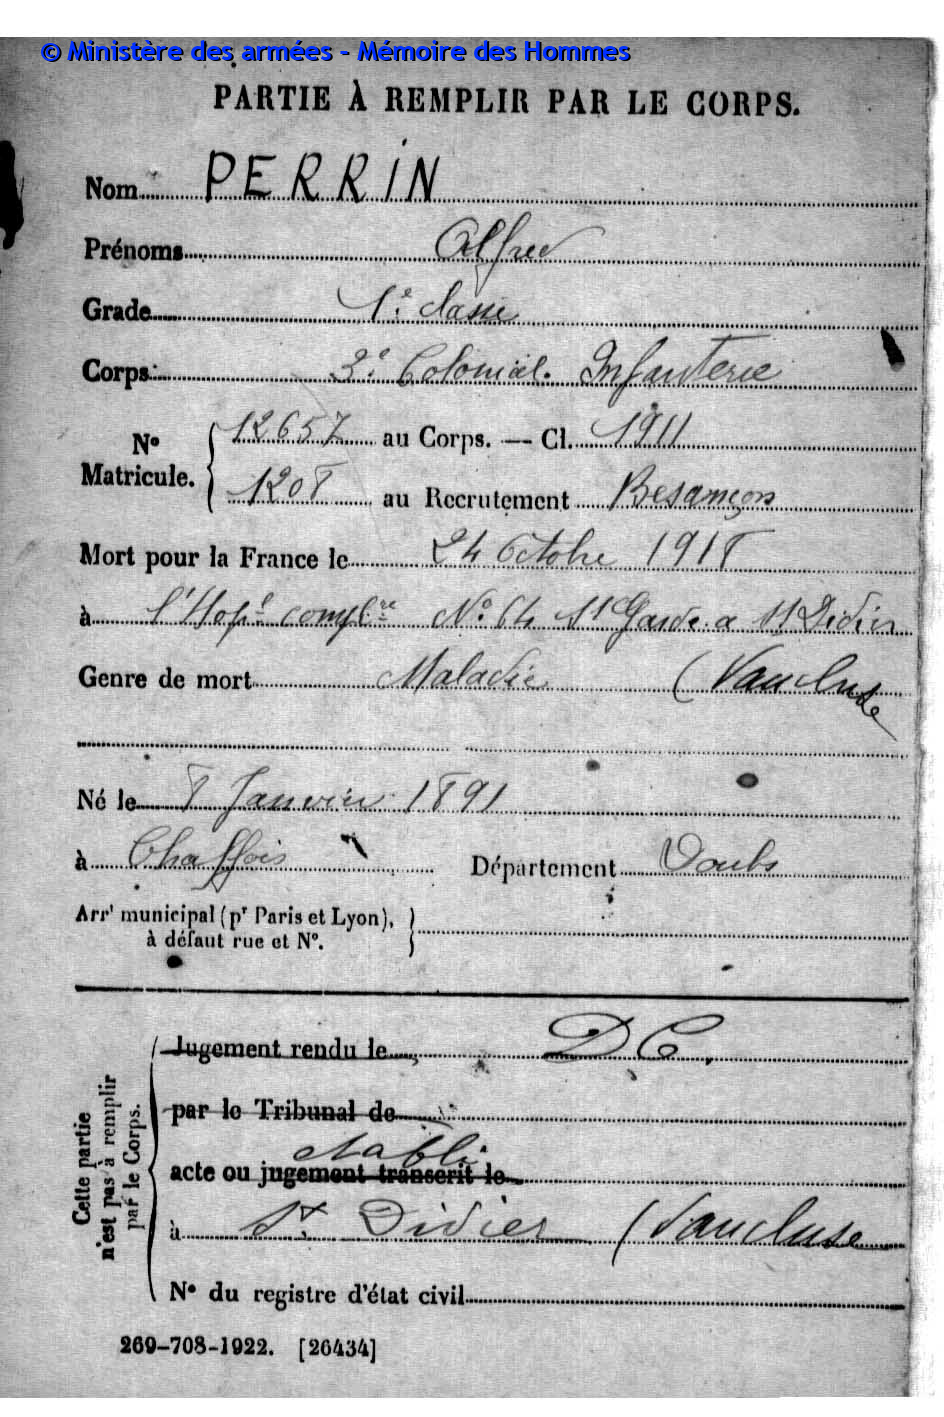 © Ministère des armées - Mémoire des Hommes
PARTIE À REMPLIR PAR LE CORPS.
Nom PERRIN
Prénoms Alfred
Grade 1e. classe
Corps: 3e. Colonial. Infanterie
No Matricule. 12657 au Corps. — Cl. 1911
1208 au Recrutement Besançon
Mort pour la France le 24 Octobre 1918
à l'Hopl complre No. 64 St Garde a St Didier
Genre de mort Maladie (Vaucluse
Né le 8 Janvier 1891
à Chaffois Département Doubs
Arrt municipal (pr Paris et Lyon),
à défaut rue et No.
Cette partie
n'est pas à remplir
par le Corps.
Jugement rendu le D C.
par le Tribunal de
etabli
acte ou jugement transcrit le
à St. Didier (Vaucluse
No du registre d'état civil
269-708-1922. [26434]